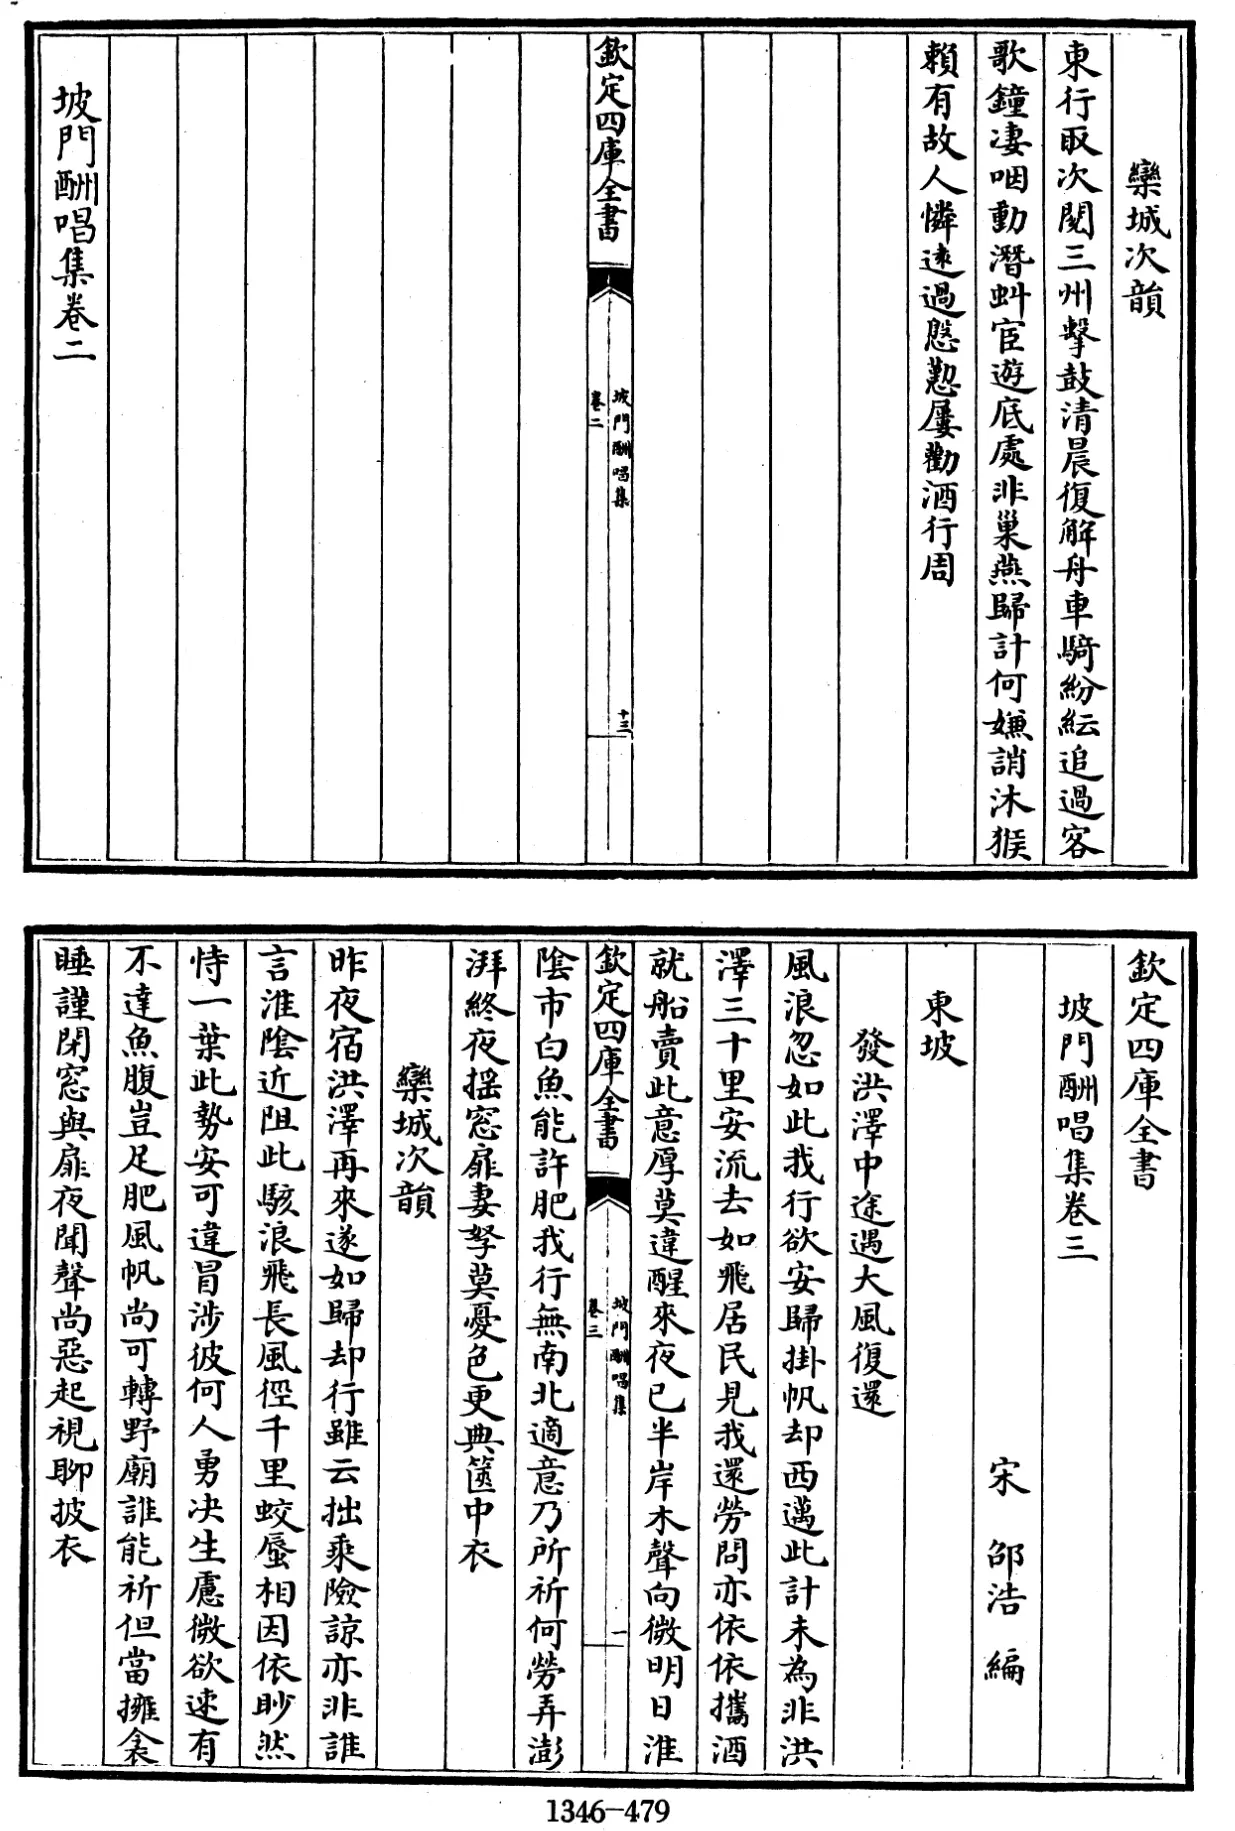 欒城次韻
東行取次閱三州擊鼓清晨復解舟車騎紛紜追過客
歌鐘凄咽動潛虯宦遊底處非巢燕歸計何嫌誚沐猴
賴有故人憐遠過慇懃屢勸酒行周
欽定四庫全書
坡門酬唱集
卷二
十三
坡門酬唱集卷二
欽定四庫全書
坡門酬唱集卷三
宋 邵浩 編
東坡
發洪澤中途遇大風復還
風浪忽如此我行欲安歸掛帆却西邁此計未為非洪
澤三十里安流去如飛居民見我還勞問亦依依攜酒
就船賣此意厚莫違醒來夜已半岸木聲向微明日淮
欽定四庫全書
坡門酬唱集
卷三
一
陰市白魚能許肥我行無南北適意乃所祈何勞弄澎
湃終夜揺窓扉妻孥莫憂色更典篋中衣
欒城次韻
昨夜宿洪澤再來遂如歸却行雖云拙乘險諒亦非誰
言淮陰近阻此駭浪飛長風徑千里蛟蜃相因依眇然
恃一葉此勢安可違冒涉彼何人勇决生慮微欲速有
不達魚腹豈足肥風帆尚可轉野廟誰能祈但當擁衾
睡謹閉窓與扉夜聞聲尚惡起視聊披衣
1346-479